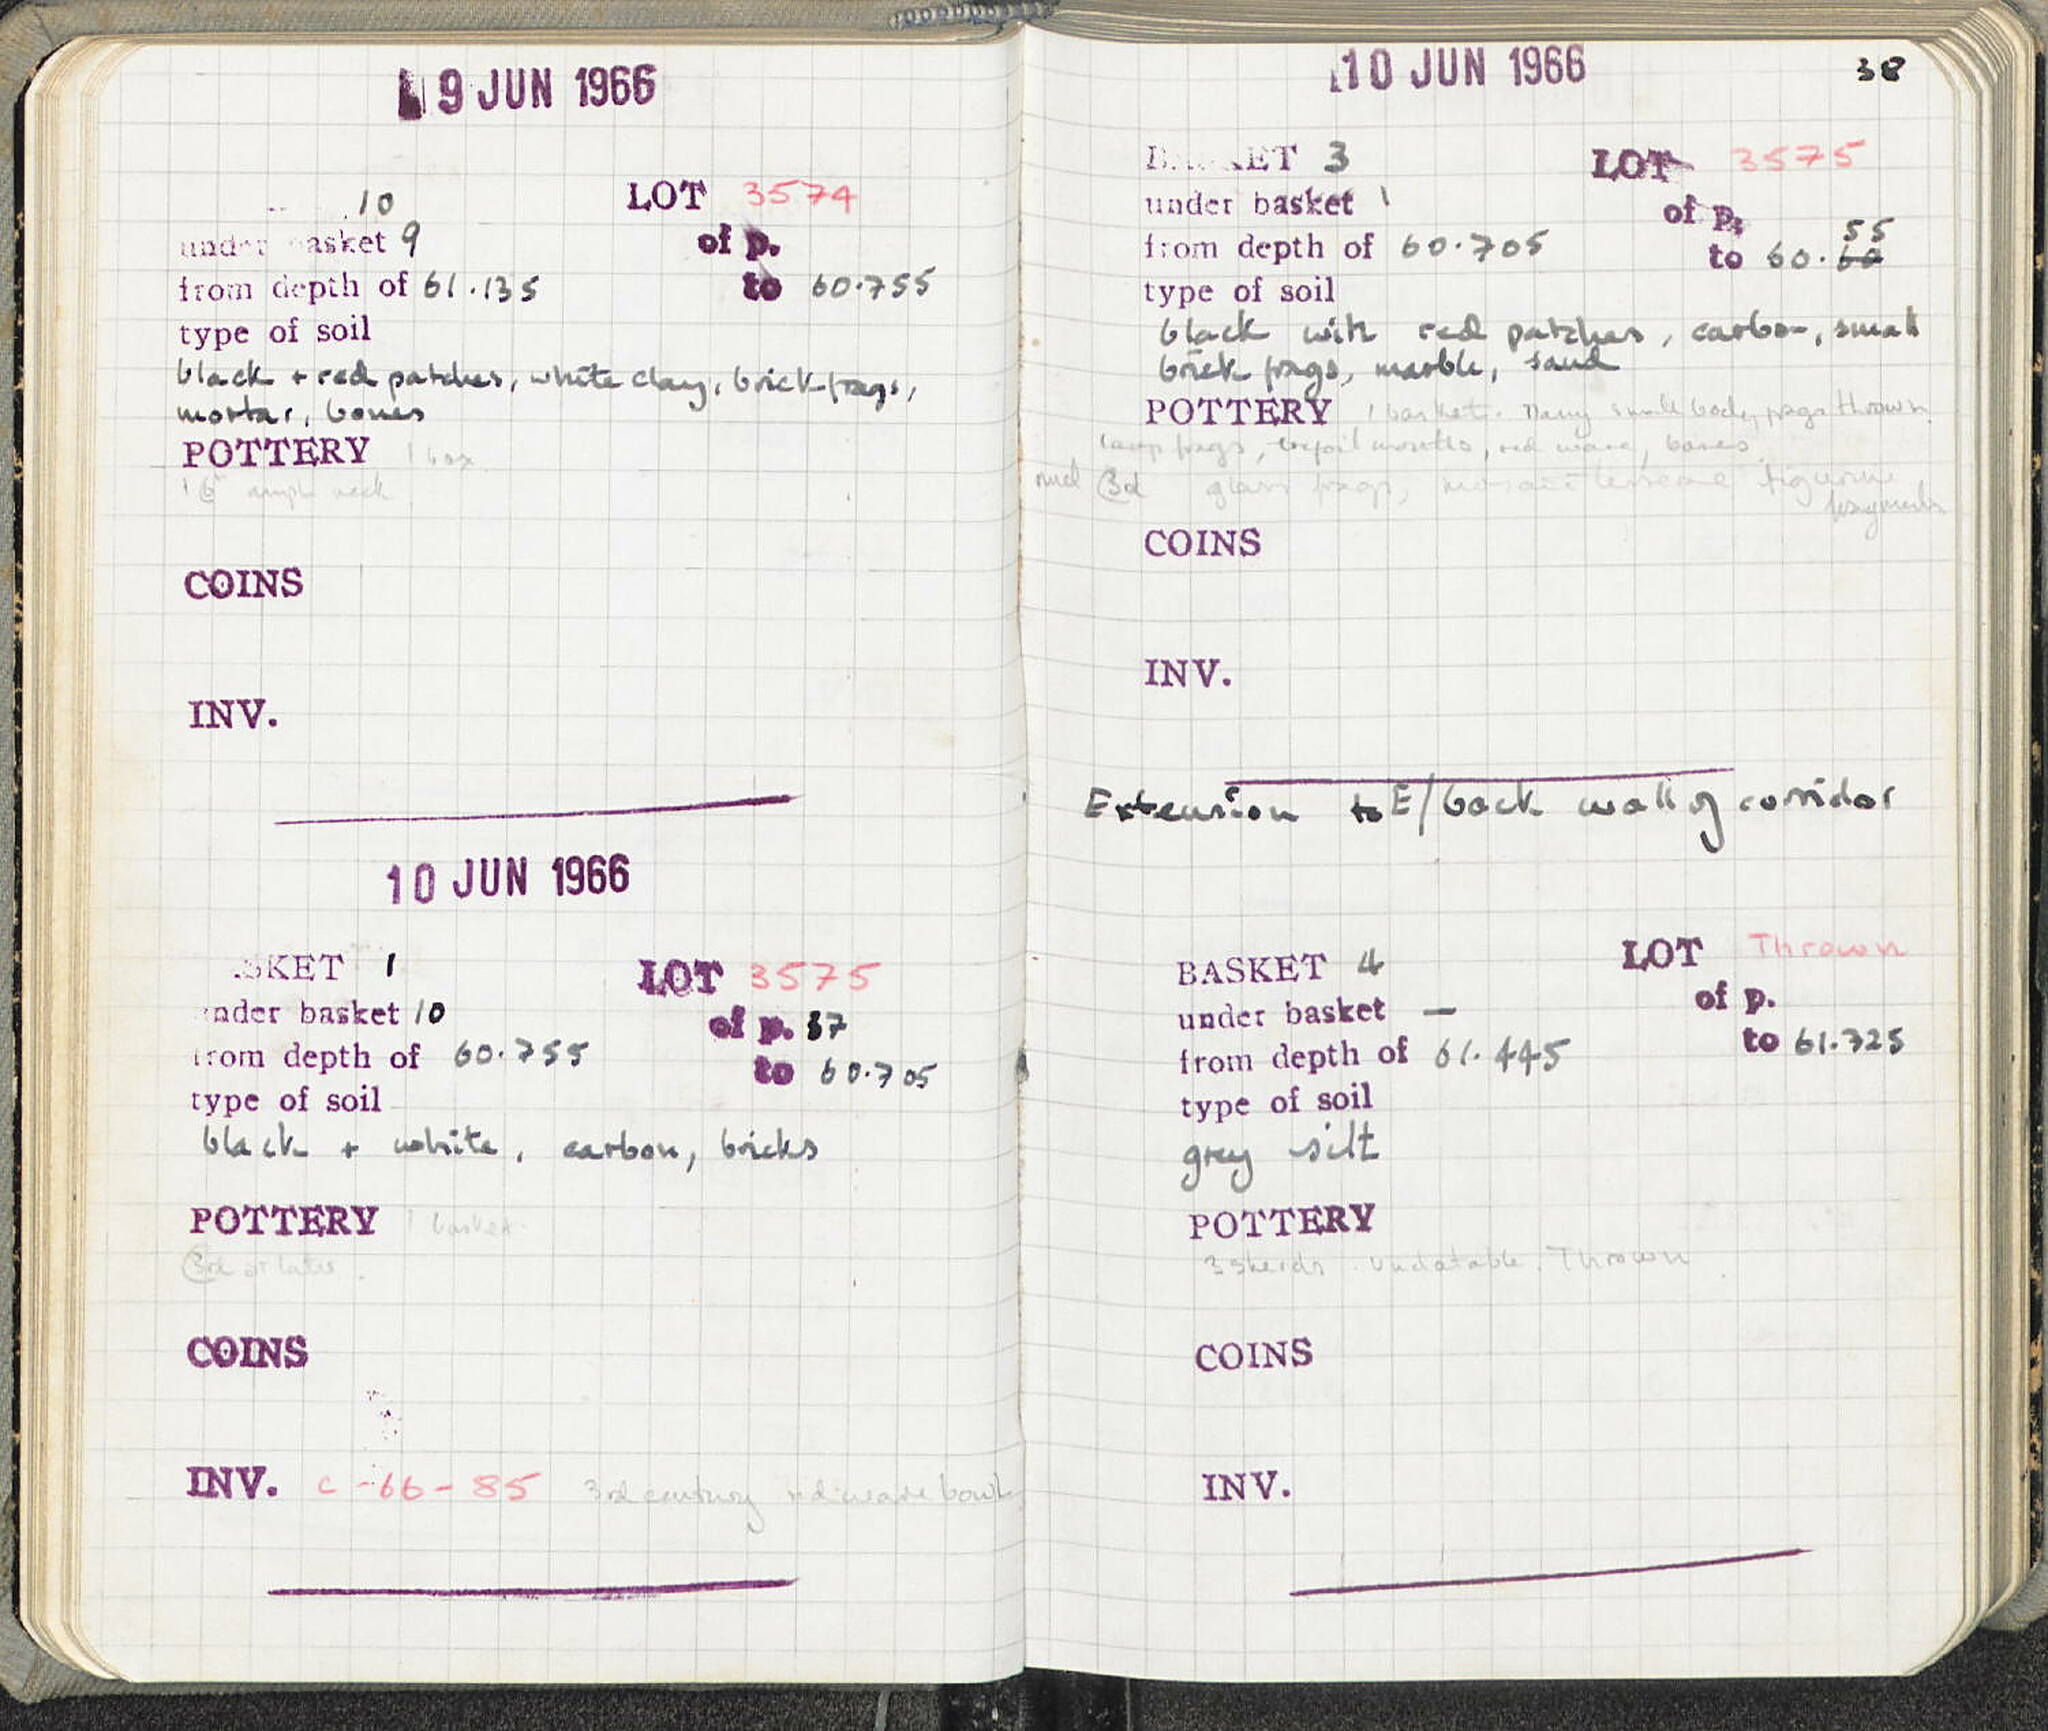 9 JUN 1966
10 LOT 3574
under basket 9 of p.
from depth of 61.135 to 60.755
type of soil
black + red patches, white clay, brick frags,
mortar, bones
POTTERY 1 box
neck
COINS
INV.
10 JUN 1966
SKET 1 LOT 3575
under basket 10 of p. 37
from depth of 60.755 to 60.705
type of soil
black + white, carbon, bricks
POTTERY 1 basket
3rd or later.
COINS
INV. C-66-85 3rd century red ware bowl
10 JUN 1966 38
BASKET 3 LOT 3575
under basket 1 of p.
from depth of 60.705 to 60.60 55
type of soil
black with red patches, carbon, small
brick frags, marble, sand
POTTERY 1 basket. Many small body frags thrown.
lamp frags, trefoil mouths, red ware, bases
3d glass frags, figurine
fragments
COINS
INV.
Extension to E/back wall of corridor
BASKET 4 LOT Thrown
under basket — of p.
from depth of 61.445 to 61.725
type of soil
grey silt
POTTERY
3 sherds. Undatable. Thrown.
COINS
INV.